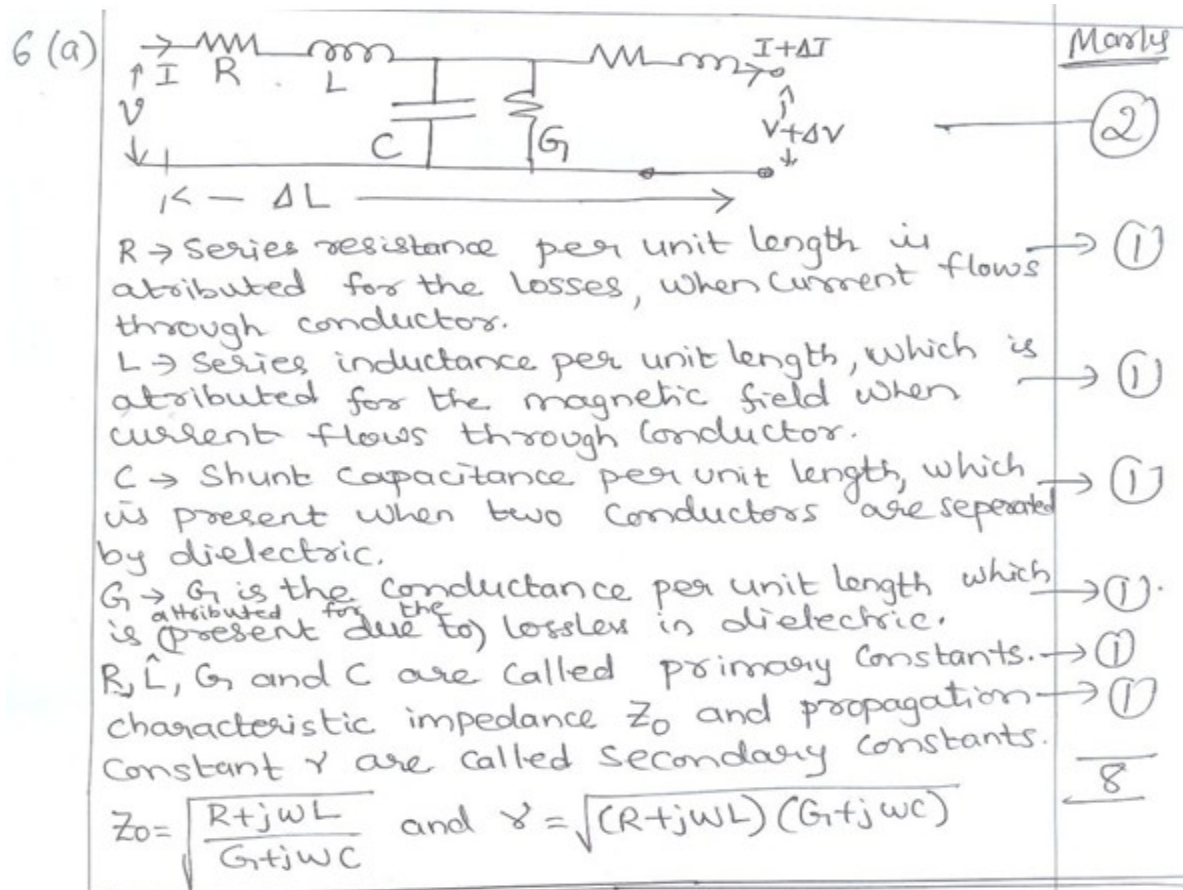 6 (a)
Marks
I R L I+ΔI
V C G V+ΔV
2
ΔL
R → Series resistance per unit length is → 1
atributed for the losses, when current flows
through conductor.
L → Series inductance per unit length, which is
atributed for the magnetic field when → 1
current flows through conductor.
C → Shunt capacitance per unit length, which → 1
is present when two conductors are seperated
by dielectric.
G → G is the conductance per unit length which → 1.
attributed for the
is (present due to) lossless in dielectric.
R, L, G and C are called primary constants. → 1
characteristic impedance Z₀ and propagation → 1
constant γ are called secondary constants.
8
Z₀ = √((R+jωL)/(G+jωC)) and γ = √((R+jωL)(G+jωC))